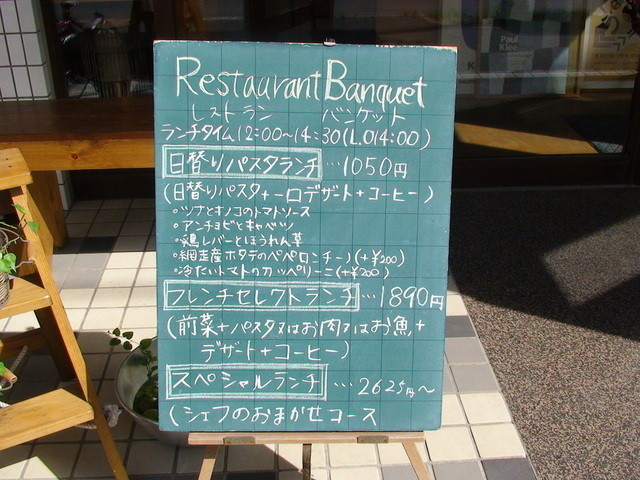 Paul
Klee
Restaurant Banquet
レストラン バンケット
ランチタイム12:00~14:30(L.O14:00)
日替りパスタランチ…1050円
(日替りパスタ+一口デザート+コーヒー)
。ツナとキノコのトマトソース
。アンチョビとキャベツ
。鶏レバーとほうれん草
。網走産ホタテのペペロンチーノ(+¥200)
。冷たいトマトのカッペリーニ(+¥200)
フレンチセレクトランチ…1890円
(前菜+パスタ又はお肉又はお魚+
デザート+コーヒー)
スペシャルランチ…2625円~
(シェフのおまかせコース